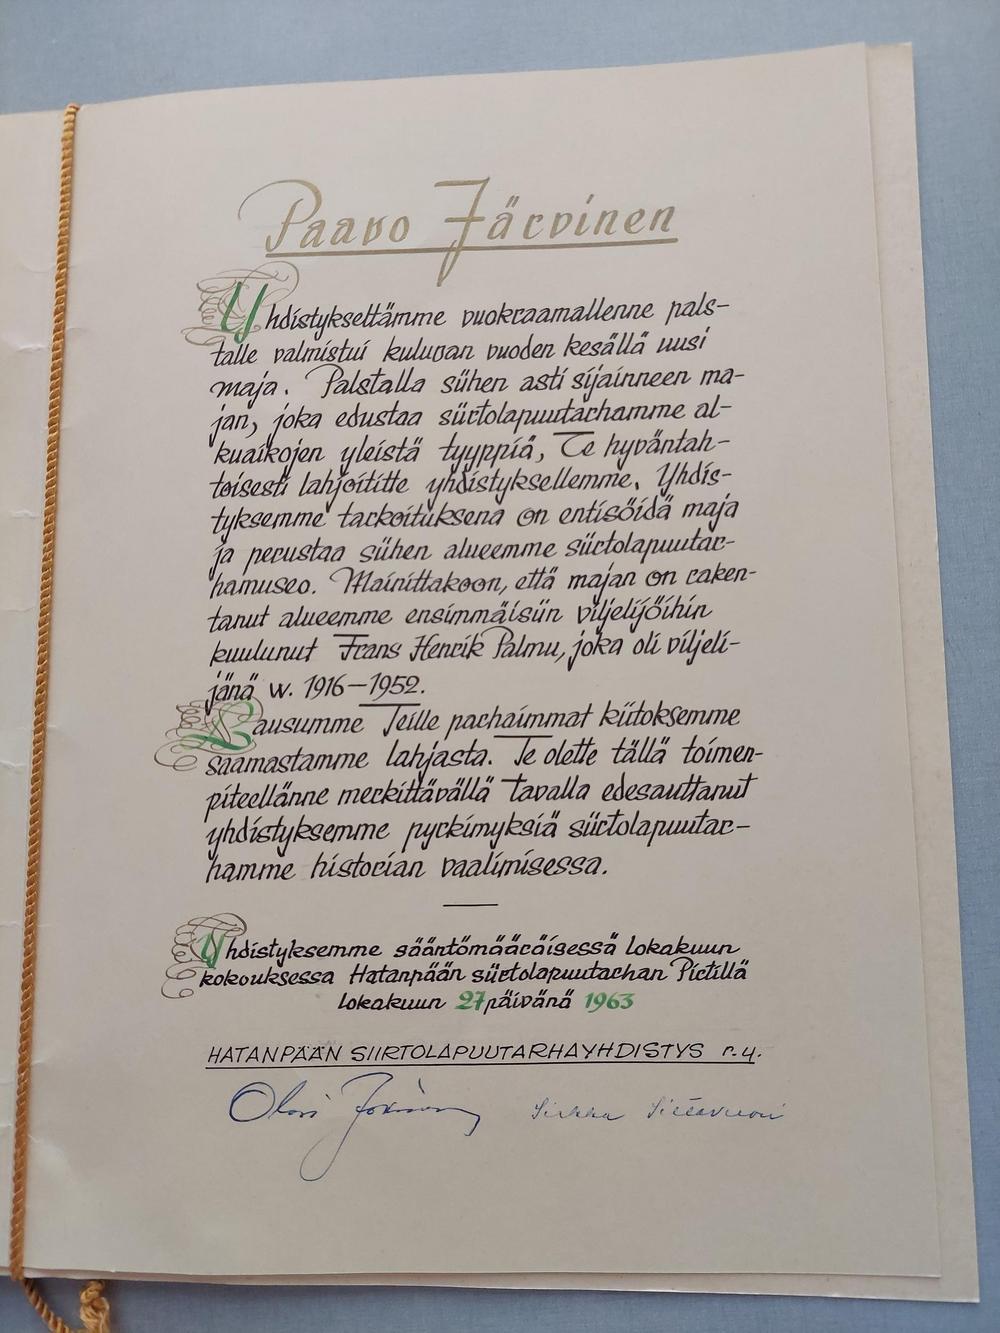 Paavo Järvinen
Yhdistykseltämme vuokraamallenne pals-
talle valmistui kuluvan vuoden kesällä uusi
maja. Palstalla siihen asti sijainneen ma-
jan, joka edustaa siirtolapuutarhamme al-
kuaikojen yleistä tyyppiä, Te hyväntah-
toisesti lahjoititte yhdistyksellemme. Yhdis-
tyksemme tarkoituksena on entisöidä maja
ja perustaa siihen alueemme siirtolapuutar-
hamuseo. Mainittakoon, että majan on raken-
tanut alueemme ensimmäisiin viljelijöihin
kuulunut Frans Henrik Palmu, joka oli viljeli-
jänä vv. 1916–1952.
Lausumme Teille parhaimmat kiitoksemme
saamastamme lahjasta. Te olette tällä toimen-
piteellänne merkittävällä tavalla edesauttanut
yhdistyksemme pyrkimyksiä siirtolapuutar-
hamme historian vaalimisessa.
Yhdistyksemme sääntömääräisessä lokakuun
kokouksessa Hatanpään siirtolapuutarhan Pirtillä
lokakuun 27 päivänä 1963
HATANPÄÄN SIIRTOLAPUUTARHAYHDISTYS r.y.
Sirkka